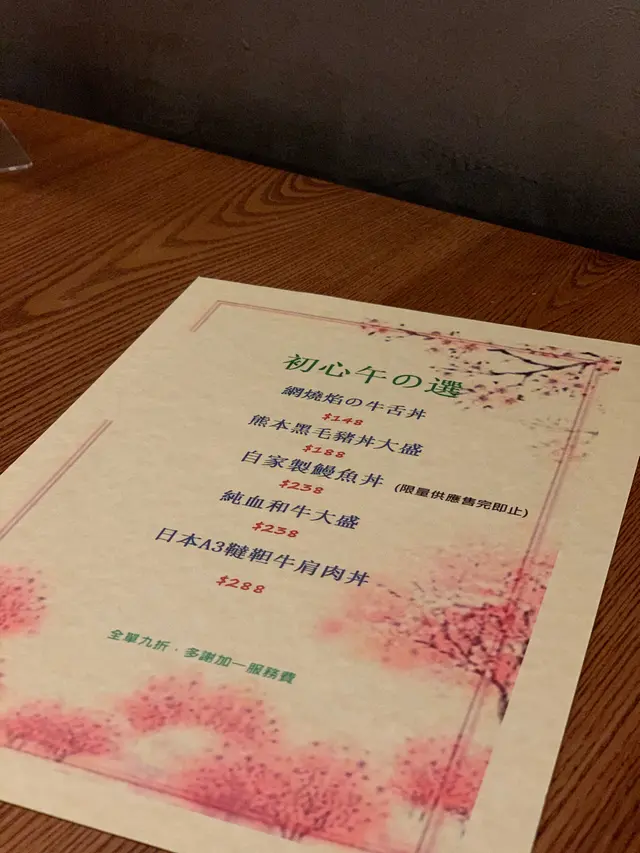 初心午の選
網燒焰の牛舌丼
$148
熊本黑毛豬丼大盛
$188
自家製鰻魚丼 (限量供應售完即止)
$238
純血和牛大盛
$238
日本A3韃靼牛肩肉丼
$288
全單九折．多謝加一服務費